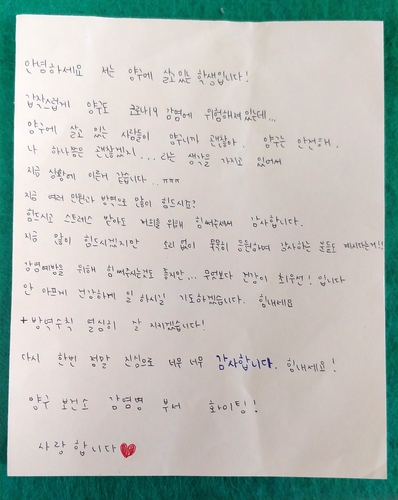 안녕하세요 저는 양구에 살고 있는 학생입니다!
갑작스럽게 양구도 코로나19 감염에 위험해져 있는데...
양구에 살고 있는 사람들이 양구니까 괜찮아. 양구는 안전해.
나 하나쯤은 괜찮겠지... 라는 생각을 가지고 있어서
지금 상황에 이른거 같습니다..ㅠㅠㅠ
지금 여러 민원과 방역으로 많이 힘드시죠?
힘드시고 스트레스 받아도 저희를 위해 힘써주셔서 감사합니다.
지금 많이 힘드시겠지만 소리 없이 묵묵히 응원하며 감사하는 분들도 계시다는거!!
감염예방을 위해 힘써주시는것도 좋지만... 무엇보다 건강이 최우선! 입니다
안 아프게 건강하게 일 하시길 기도하겠습니다. 힘내세요
+ 방역수칙 열심히 잘 지키겠습니다!
다시 한번 정말 진심으로 너무 너무 감사합니다. 힘내세요!
양구 보건소 감염병 부서 화이팅!
사랑합니다